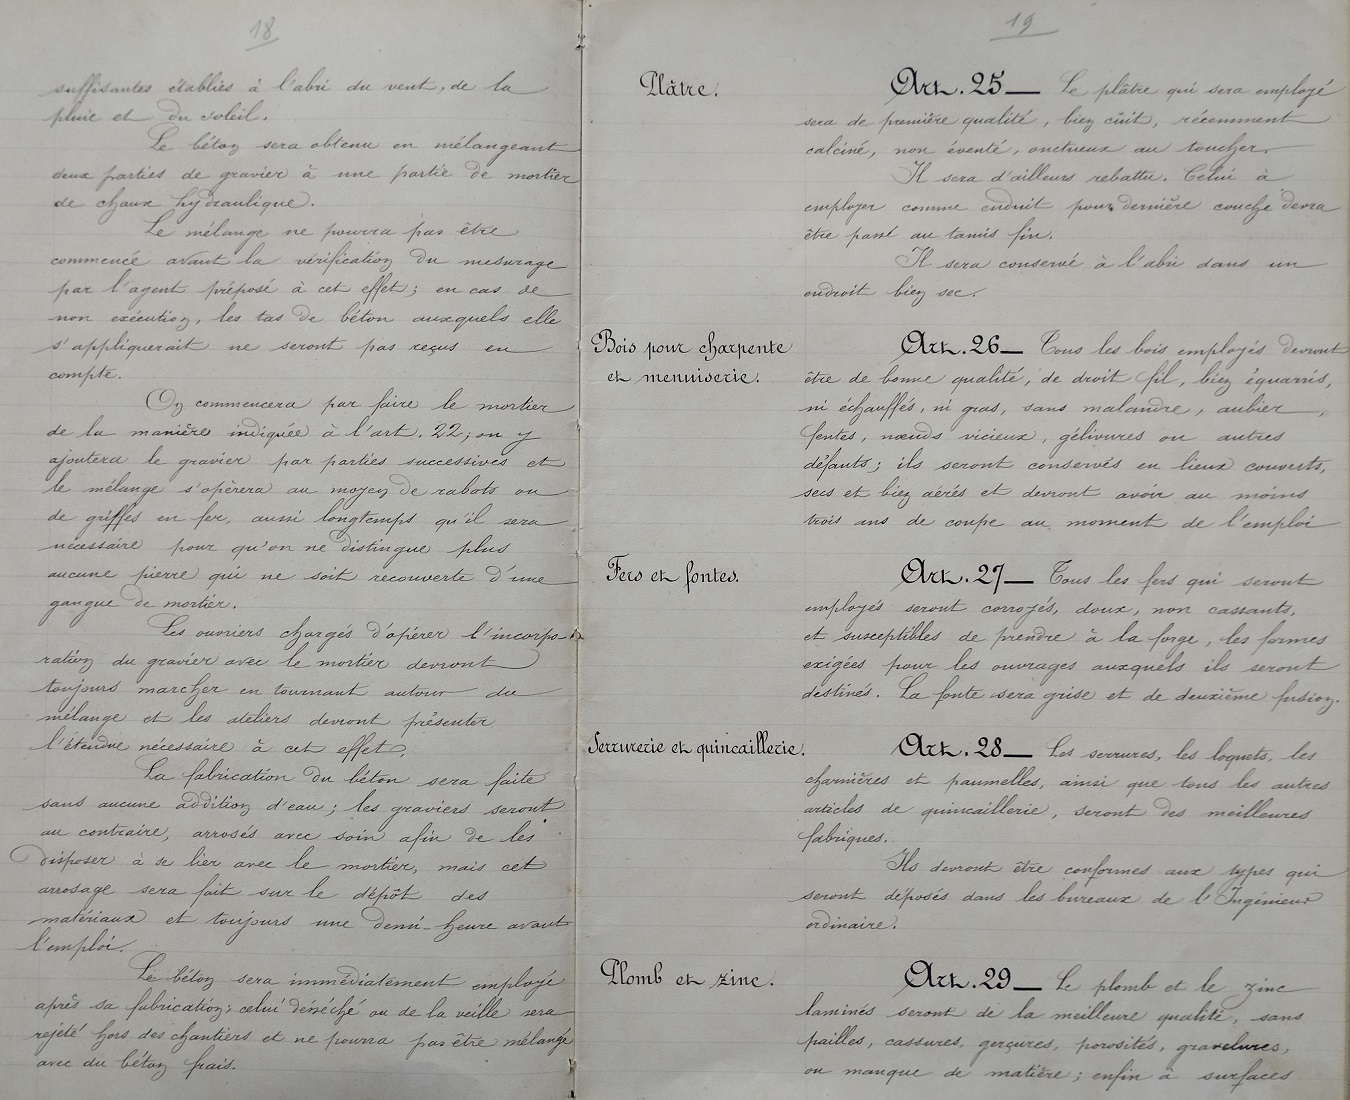 18
suffisantes établies à l'abri du vent, de la
pluie et du soleil.
Le béton sera obtenu en mélangeant
deux parties de gravier à une partie de mortier
de chaux hydraulique.
Le mélange ne pourra pas être
commencé avant la vérification du mesurage
par l'agent préposé à cet effet; en cas de
non exécution, les tas de béton auxquels elle
s'appliquerait ne seront pas reçus en
compte.
On commencera par faire le mortier
de la manière indiquée à l'art. 22; on y
ajoutera le gravier par parties successives et
le mélange s'opèrera au moyen de rabots ou
de griffes en fer, aussi longtemps qu'il sera
nécessaire pour qu'on ne distingue plus
aucune pierre qui ne soit recouverte d'une
gangue de mortier.
Les ouvriers chargés d'opérer l'incorpo-
ration du gravier avec le mortier devront
toujours marcher en tournant autour du
mélange et les ateliers devront présenter
l'étendue nécessaire à cet effet.
La fabrication du béton sera faite
sans aucune addition d'eau; les graviers seront
au contraire, arrosés avec soin afin de les
disposer à se lier avec le mortier, mais cet
arrosage sera fait sur le dépôt des
matériaux et toujours une demi-heure avant
l'emploi.
Le béton sera immédiatement employé
après sa fabrication; celui désséché ou de la veille sera
rejeté hors des chantiers et ne pourra pas être mélangé
avec du béton frais.
19
Plâtre.
Art. 25 — Le plâtre qui sera employé
sera de première qualité, bien cuit, récemment
calciné, non éventé, onctueux au toucher.
Il sera d'ailleurs rebattu. Celui à
employer comme enduit pour dernière couche devra
être passé au tamis fin.
Il sera conservé à l'abri dans un
endroit bien sec.
Bois pour charpente
et menuiserie.
Art. 26 — Tous les bois employés devront
être de bonne qualité, de droit fil, bien équarris,
ni échauffés, ni gras, sans malandre, aubier,
fentes, nœuds vicieux, gélivures ou autres
défauts; ils seront conservés en lieux couverts,
secs et bien aérés et devront avoir au moins
trois ans de coupe au moment de l'emploi
Fers et fontes.
Art. 27 — Tous les fers qui seront
employés seront corroyés, doux, non cassants,
et susceptibles de prendre à la forge, les formes
exigées pour les ouvrages auxquels ils seront
destinés. La fonte sera grise et de deuxième fusion.
Serrurerie et quincaillerie.
Art. 28 — Les serrures, les loquets, les
charnières et paumelles, ainsi que tous les autres
articles de quincaillerie, seront des meilleures
fabriques.
Ils devront être conformes aux types qui
seront déposés dans les bureaux de l'Ingénieur
ordinaire.
Plomb et zinc.
Art. 29 — Le plomb et le zinc
laminés seront de la meilleure qualité, sans
pailles, cassures, gerçures, porosités, gravelures,
ou manque de matière; enfin à surfaces